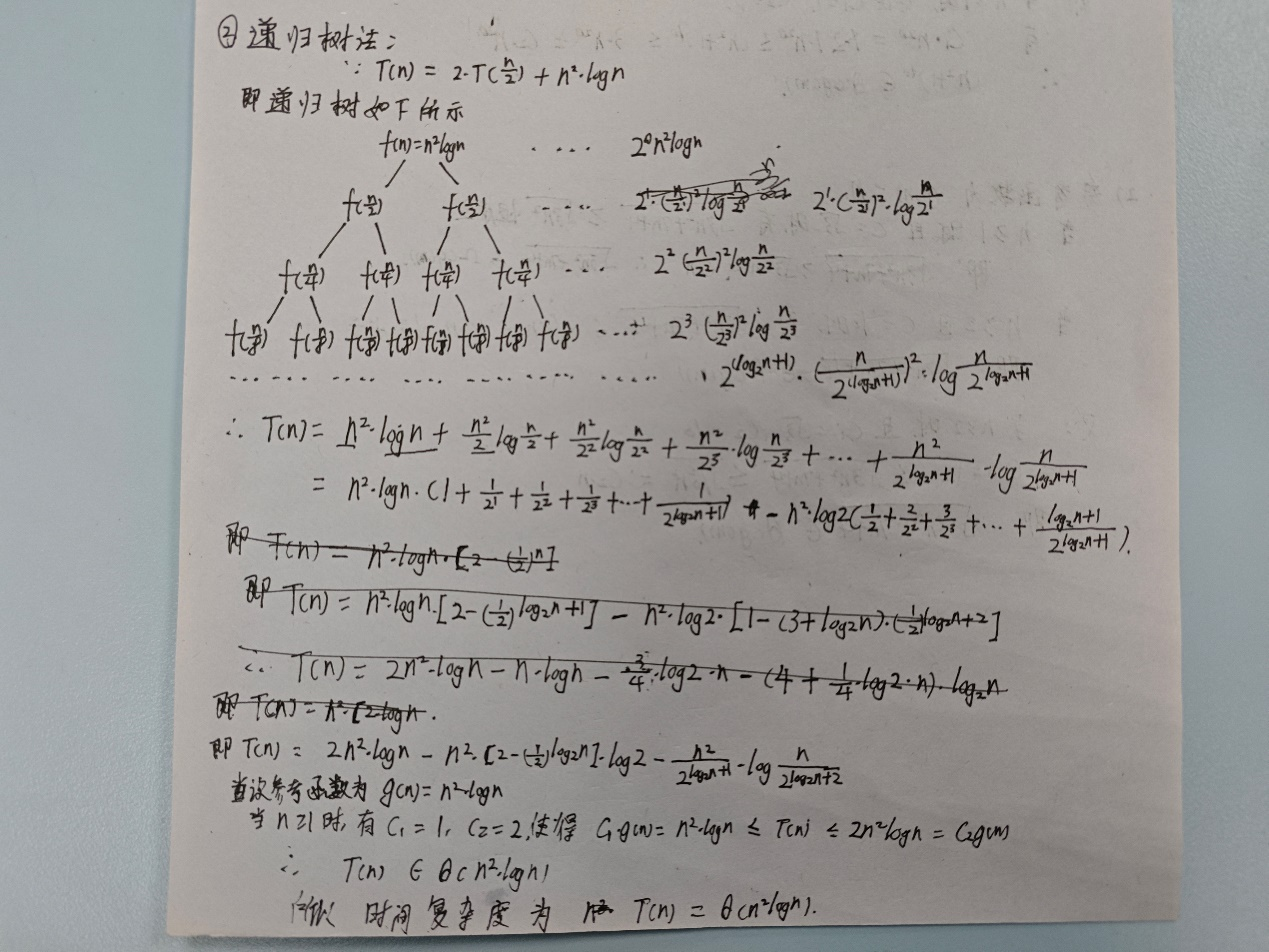 ② 递归树法：
∵ T(n) = 2·T(n/2) + n²·logn
即递归树如下所示
f(n)=n²logn .... 2⁰n²logn
f(n/2) f(n/2) .... 2¹·(n/2¹)²log n/2¹ 2¹·(n/2¹)²·log n/2¹
f(n/4) f(n/4) f(n/4) f(n/4) .... 2² (n/2²)²log n/2²
f(n/8) f(n/8) f(n/8) f(n/8) f(n/8) f(n/8) f(n/8) f(n/8) .... 2³ (n/2³)²log n/2³
...... .... .... .... ...... .... 2^(log₂n+1) · (n/2^(log₂n+1))² · log n/2^(log₂n+1)
∴ T(n) = n²·logn + n²/2 log n/2 + n²/2² log n/2² + n²/2³·log n/2³ + ··· + n²/2^(log₂n+1) ·log n/2^(log₂n+1)
= n²·logn·(1 + 1/2¹ + 1/2² + 1/2³ +···+ 1/2^(log₂n+1)) - n²·log2(1/2 + 2/2² + 3/2³ + ··· + (log₂n+1)/2^(log₂n+1)).
即 T(n) = n²·logn·[2-(1/2)ⁿ]
即 T(n) = n²·logn·[2-(1/2)^(log₂n+1)] - n²·log2·[1-(3+log₂n)·(1/2)^(log₂n+2)]
∴ T(n) = 2n²·logn - n·logn - 3/4·log2·n - (4 + 1/4·log2·n)·log₂n
即 T(n) = n²·[2·logn.
即 T(n) = 2n²·logn - n²·[2-(1/2)^(log₂n)]·log2 - n²/2^(log₂n+1) - log n/2^(log₂n+2)
当设参考函数为 g(n) = n²·logn
当 n≥1时, 有 C₁=1, C₂=2, 使得 C₁·g(n) = n²·logn ≤ T(n) ≤ 2n²logn = C₂g(n)
∴ T(n) ∈ θ(n²·logn)
所以 时间复杂度为 n² T(n) = θ(n²logn).